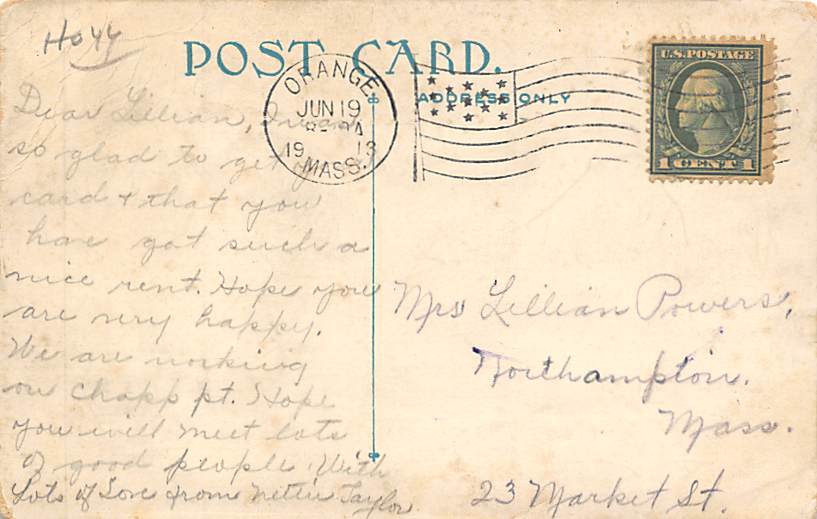 POST CARD.
ADDRESS ONLY
ORANGE
JUN 19
19 13
MASS.
U.S. POSTAGE
1 CENT 1
Dear Lillian, I was
so glad to get your
card & that you
have got such a
nice rent. Hope you
are very happy.
We are working
on Chapp pt. Hope
you will meet lots
of good people. With
Lots of Love from Nettie Taylor
Mrs Lillian Powers,
Northampton.
Mass.
23 Market St.